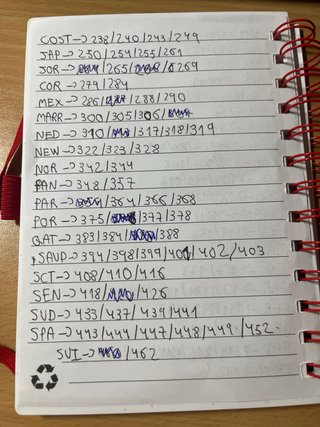 COST→238/240/243/249
JAP→250/254/255/261
JOR→/265/269
COR→279/284
MEX→286/288/290
MARR→300/305/306/
NED→310/317/318/319
NEW→322/323/328
NOR→342/344
PAN→348/357
PAR→/364/366/368
POR→375/377/378
QAT→383/384/388
SAUD→394/398/399/401/402/403
SCT→408/410/416
SEN→418/426
SUD→433/437/439/441
SPA→443/444/447/448/449/452
SUI→/462